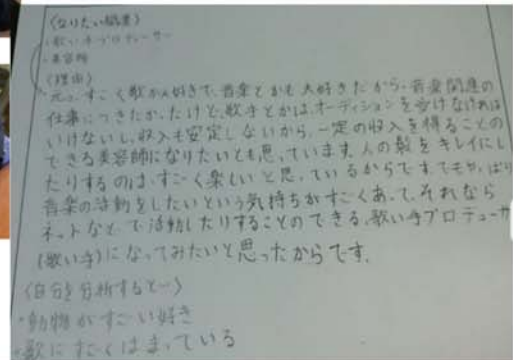 〈なりたい職業〉
・歌い手プロデューサー
・美容師
〈理由〉
元々すごく歌が大好きで、音楽とかも大好きだから、音楽関連の
仕事につきたかったけど、歌手とかは、オーディションを受けなければ
いけないし、収入も安定しないから、一定の収入を得ることの
できる美容師になりたいとも思っています。人の髪をキレイにし
たりするのは、すごく楽しいと思っているからです。でもやっぱり
音楽の活動をしたいという気持ちがすごくあって、それなら
ネットなどで活動したりすることのできる、歌い手プロデューサ
(歌い手)になってみたいと思ったからです。
〈自分を分析すると…〉
・動物がすごい好き
・歌にすごくはまっている